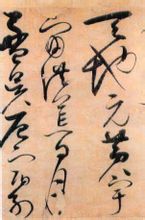 天地元黄宇
宙洪荒日月
盈昃辰宿列